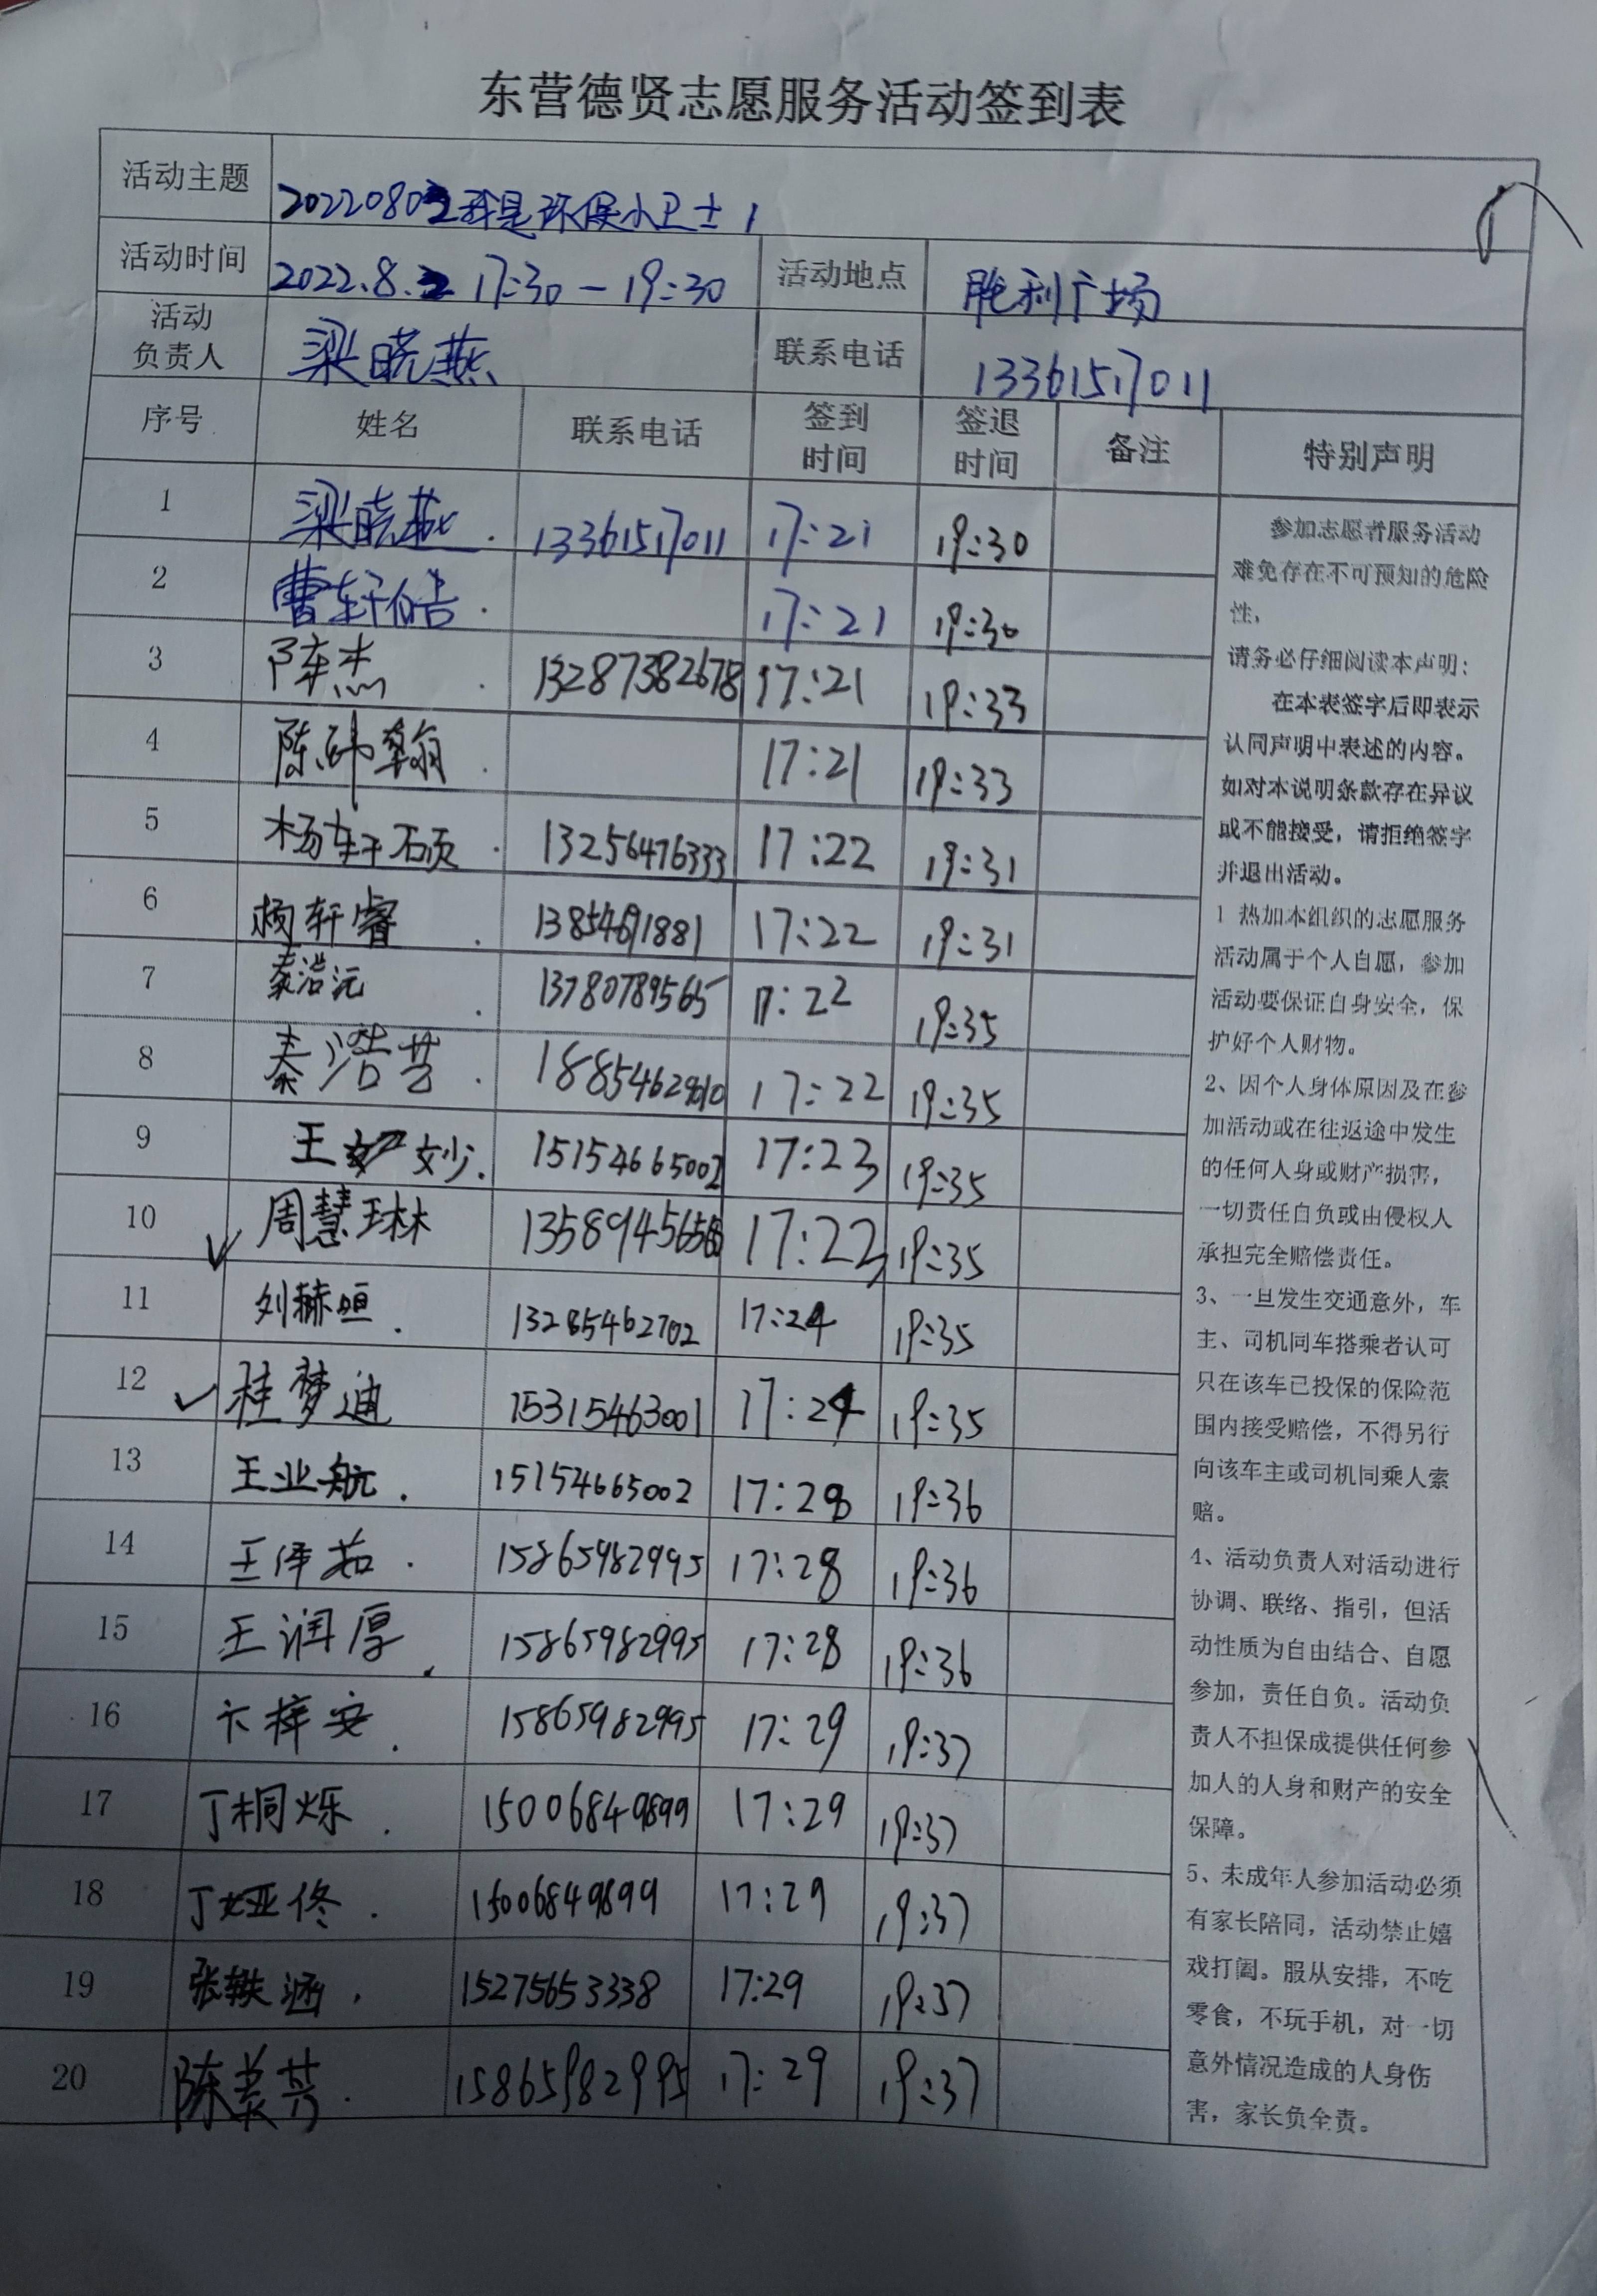 东营德贤志愿服务活动签到表
活动主题 20220802我是环保小卫士1
活动时间 2022.8.2 17:30-19:30 活动地点 胜利广场
活动负责人 梁晓燕 联系电话 13361517011
序号 姓名 联系电话 签到时间 签退时间 备注 特别声明
1 梁晓燕 13361517011 17:21 19:30
2 曹轩皓 17:21 19:30
3 陈杰 13287382678 17:21 19:33
4 陈玮翰 17:21 19:33
5 杨轩硕 13256476333 17:22 19:31
6 杨轩睿 17:22 19:31
7 秦浩沅 13780789565 17:22 19:35
8 秦浩芸 17:22 19:35
9 王妙 15154665002 17:23 19:35
10 周慧琳 17:22 19:35
11 刘赫烜 13285462702 17:24 19:35
12 桂梦迪 15315463001 17:24 19:35
13 王业航 15154665002 17:28 19:36
14 王泽茹 15865982995 17:28 19:36
15 王润厚 15865982995 17:28 19:36
16 卞梓安 15865982995 17:29 19:37
17 丁桐烁 15006849899 17:29 19:37
18 丁娅佟 15006849899 17:29 19:37
19 张轶涵 15275653338 17:29 19:37
20 陈美芳 15865982995 17:29 19:37
参加志愿者服务活动
难免存在不可预知的危险
性，
请务必仔细阅读本声明：
在本表签字后即表示
认同声明中表述的内容。
如对本说明条款存在异议
或不能接受，请拒绝签字
并退出活动。
1 热加本组织的志愿服务
活动属于个人自愿，参加
活动要保证自身安全，保
护好个人财物。
2、因个人身体原因及在参
加活动或在往返途中发生
的任何人身或财产损害，
一切责任自负或由侵权人
承担完全赔偿责任。
3、一旦发生交通意外，车
主、司机同车搭乘者认可
只在该车已投保的保险范
围内接受赔偿，不得另行
向该车主或司机同乘人索
赔。
4、活动负责人对活动进行
协调、联络、指引，但活
动性质为自由结合、自愿
参加，责任自负。活动负
责人不担保成提供任何参
加人的人身和财产的安全
保障。
5、未成年人参加活动必须
有家长陪同，活动禁止嬉
戏打闹。服从安排，不吃
零食，不玩手机，对一切
意外情况造成的人身伤
害，家长负全责。